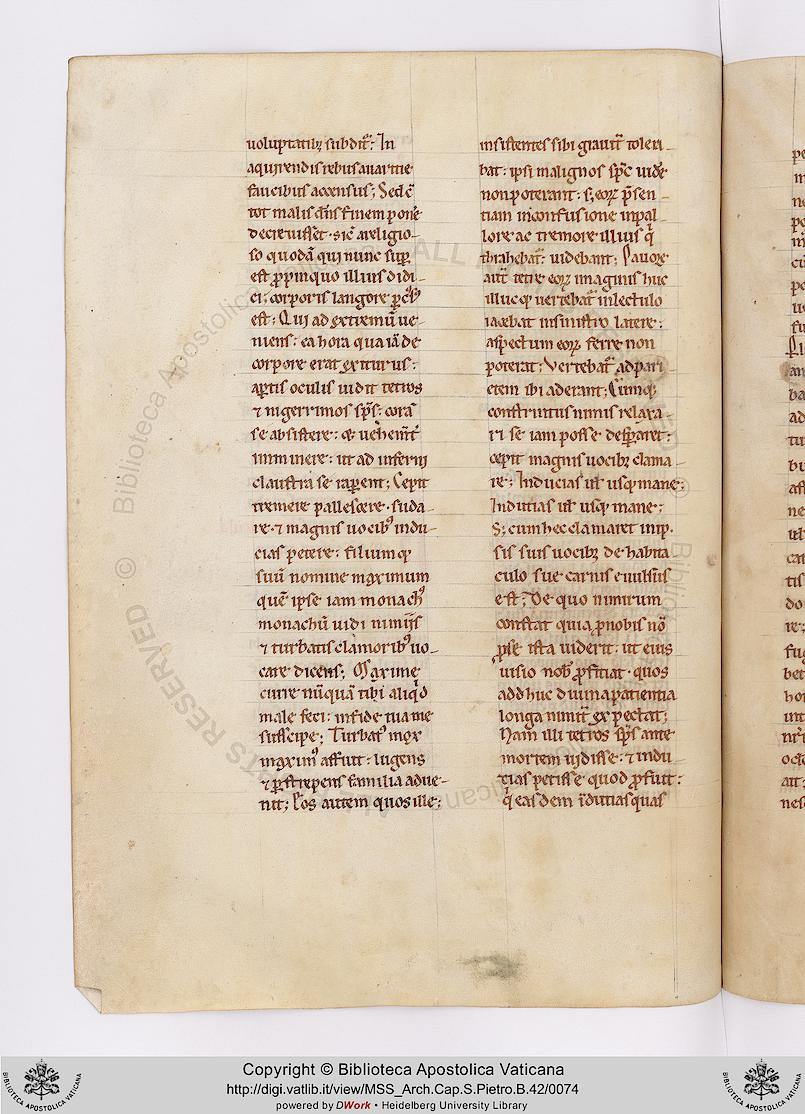 uoluptatibꝫ subdit᷒: In
aquirendis rebus auaritie
faucibus accensus; Sed cū
tot malis dn̄s finem ponere
decreuisset· sic̄ a religio-
so quodā qui nunc sup̱
est p̱pinquo illius didi-
ci; corporis langore p̱cussus
est; Qui ad extremū ue-
niens: ea hora qua iā de
corpore erat exiturus:
apertis oculis uidit tetros
⁊ nigerrimos sp̄s: corā
se absistere: & uehemt̄
imminere: ut ad inferni
claustra se raperent; Cepit
tremere pallescere· suda-
re· ⁊ magnis uocib᷒ indu-
cias petere: filiumq̄
suū nomine maximum
quē ipse iam monach᷒
monachū uidi nimijs
⁊ turbatis clamorib᷒ uo-
care dicens; Maxime
curre nūquā tibi aliqd̄
male feci: in fide tua me
suscipe; Turbat᷒ mox
maxim᷒ affuit: lugens
⁊ p̱strepens familia adue-
nit; Eos autem quos ille;
insistentes sibi grauit̄ toleri-
bat: ipsi malignos sp̄c uidere
non poterant: s; eorꝝ p̄sen-
tiam in confusione inpal-
lore ac tremore illius q̄
thrahebat̄: uidebant; Pauore
aut̄ tetre eorꝝ imaginis huc
illucq; uertebat̄ in lectulo
iacebat in sinistro latere:
aspectum eorꝝ ferre non
poterat; Vertebat̄ ad pari-
etem ibi aderant; Cumq;
constrictus nimis relaxa-
ri se iam posse desꝑaret:
cepit magnis uocibꝫ clama-
re: Inducias uł usq; mane;
Inducias uł usq; mane;
S; cum hec clamaret in ip-
sis suis uocibꝫ de habita-
culo sue carnis euulsus
est; De quo nimirum
constat quia p̱ nobis nō
p̱ se ista uiderit: ut eius
uisio nob̄ p̱ficiat· quos
adhuc diuina patientia
longa nimit̄ expectat;
Nam illi tetros sp̄s ante
mortem uidisse· ⁊ indu-
cias petisse quod p̱fuit:
q̄ easdem īdutias quas
Copyright © Biblioteca Apostolica Vaticana
http://digi.vatlib.it/view/MSS_Arch.Cap.S.Pietro.B.42/0074
powered by DWork • Heidelberg University Library